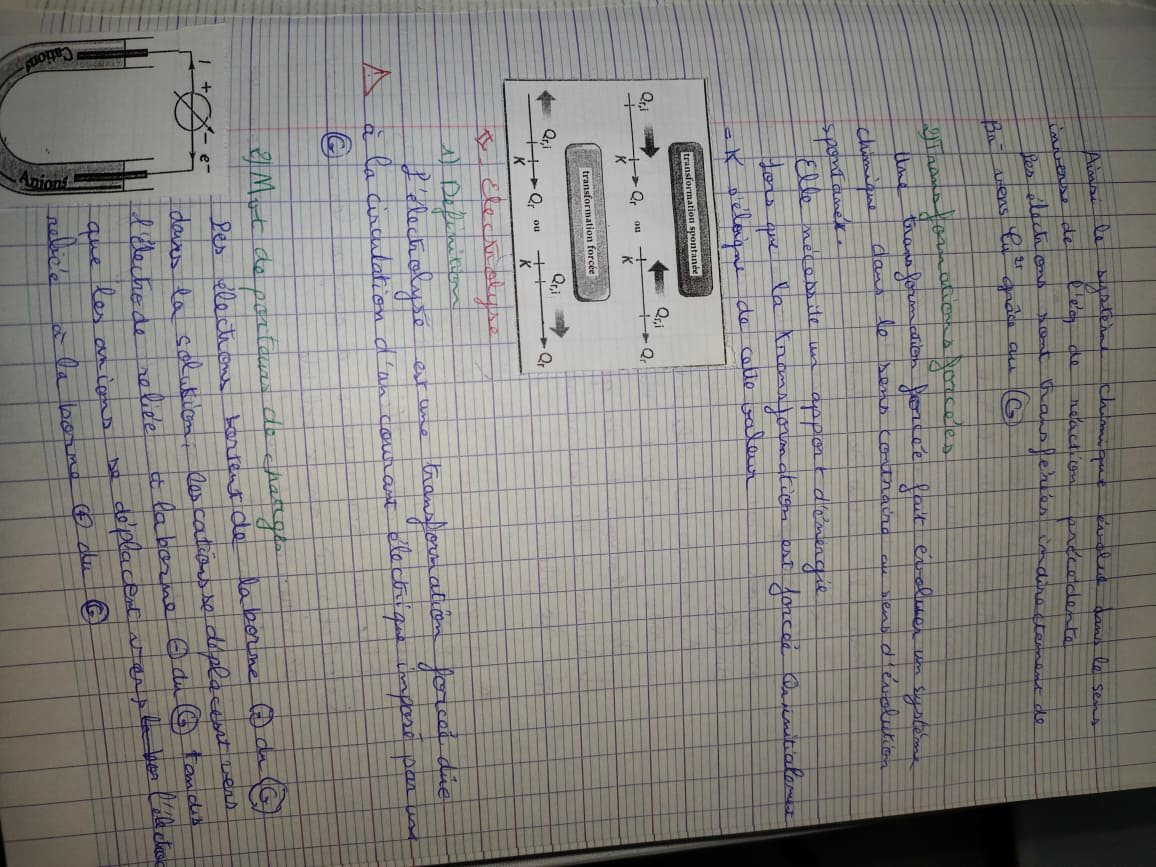 Ainsi le système chimique évolue dans le sens
inverse de l'éq de réaction précédente
Des électrons sont transférés indirectement de
Br⁻ vers Cu²⁺ grâce au G
2) Transformations forcées
Une transformation forcée fait évoluer un système
chimique dans le sens contraire au sens d'évolution
spontanée.
Elle nécessite un apport d'énergie
Lors que la transformation est forcée Qr initialement
= K s'éloigne de cette valeur
transformation spontanée
Qr,i K Qr ou K Qr,i Qr
transformation forcée
Qr,i K Qr ou K Qr,i Qr
Electrolyse
1) Définition
L'électrolyse est une transformation forcée dûe
à la circulation d'un courant électrique imposé par un
G
2) Mvt de porteurs de charges
Des électrons sortent de la borne ⊖ du G
dans la solution, les cations se déplacent vers
l'électrode reliée à la borne ⊖ du G tandis
que les anions se déplacent vers l'électrode
reliée à la borne ⊕ du G
I + − e⁻
Cations
Anions